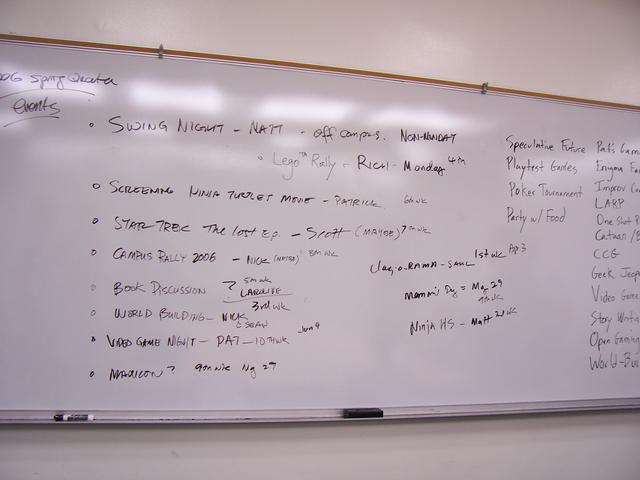 Spring Quarter
events
• SWING NIGHT - MATT - off campus. NON-MONDAY
• Lego™ Rally - RICH - Monday 4th
• SCREENING NINJA TURTLES MOVIE - PATRICK 6th wk
• STAR TREK The lost Ep. - Scott (MAYBE) 7th wk
• CAMPUS RALLY 2006 - NICK (MAYBE) 8th wk
• BOOK DISCUSSION ? 5th wk
3rd wk
• WORLD BUILDING - NICK
SEAN
• VIDEO GAME NIGHT - PAT - 10th wk Jun 4
• ? 9th wk 27
-O-RAMA - SAUL 1st wk Apr 3
Day = May 29
9th wk
Ninja HS - Matt 2nd wk
Speculative Future
Playtest Games
Poker Tournament
Party w/ Food
Pat's Gam
Enigma
Improv
LARP
One Shot
Catan
CCG
Geek Jeop
Video Game
Story Writi
Open Gaming
World-Bui